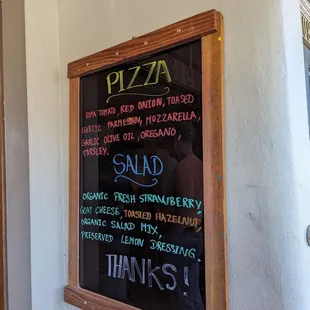 PIZZA
ROMA TOMATO, RED ONION, TOASED
GARLIC PARMESAN, MOZZARELLA,
GARLIC OLIVE OIL, OREGANO,
PARSLEY.
SALAD
ORGANIC FRESH STRAWBERRY
GOAT CHEESE, TOASTED HAZELNUT,
ORGANIC SALAD MIX,
PRESERVED LEMON DRESSING.
THANKS!